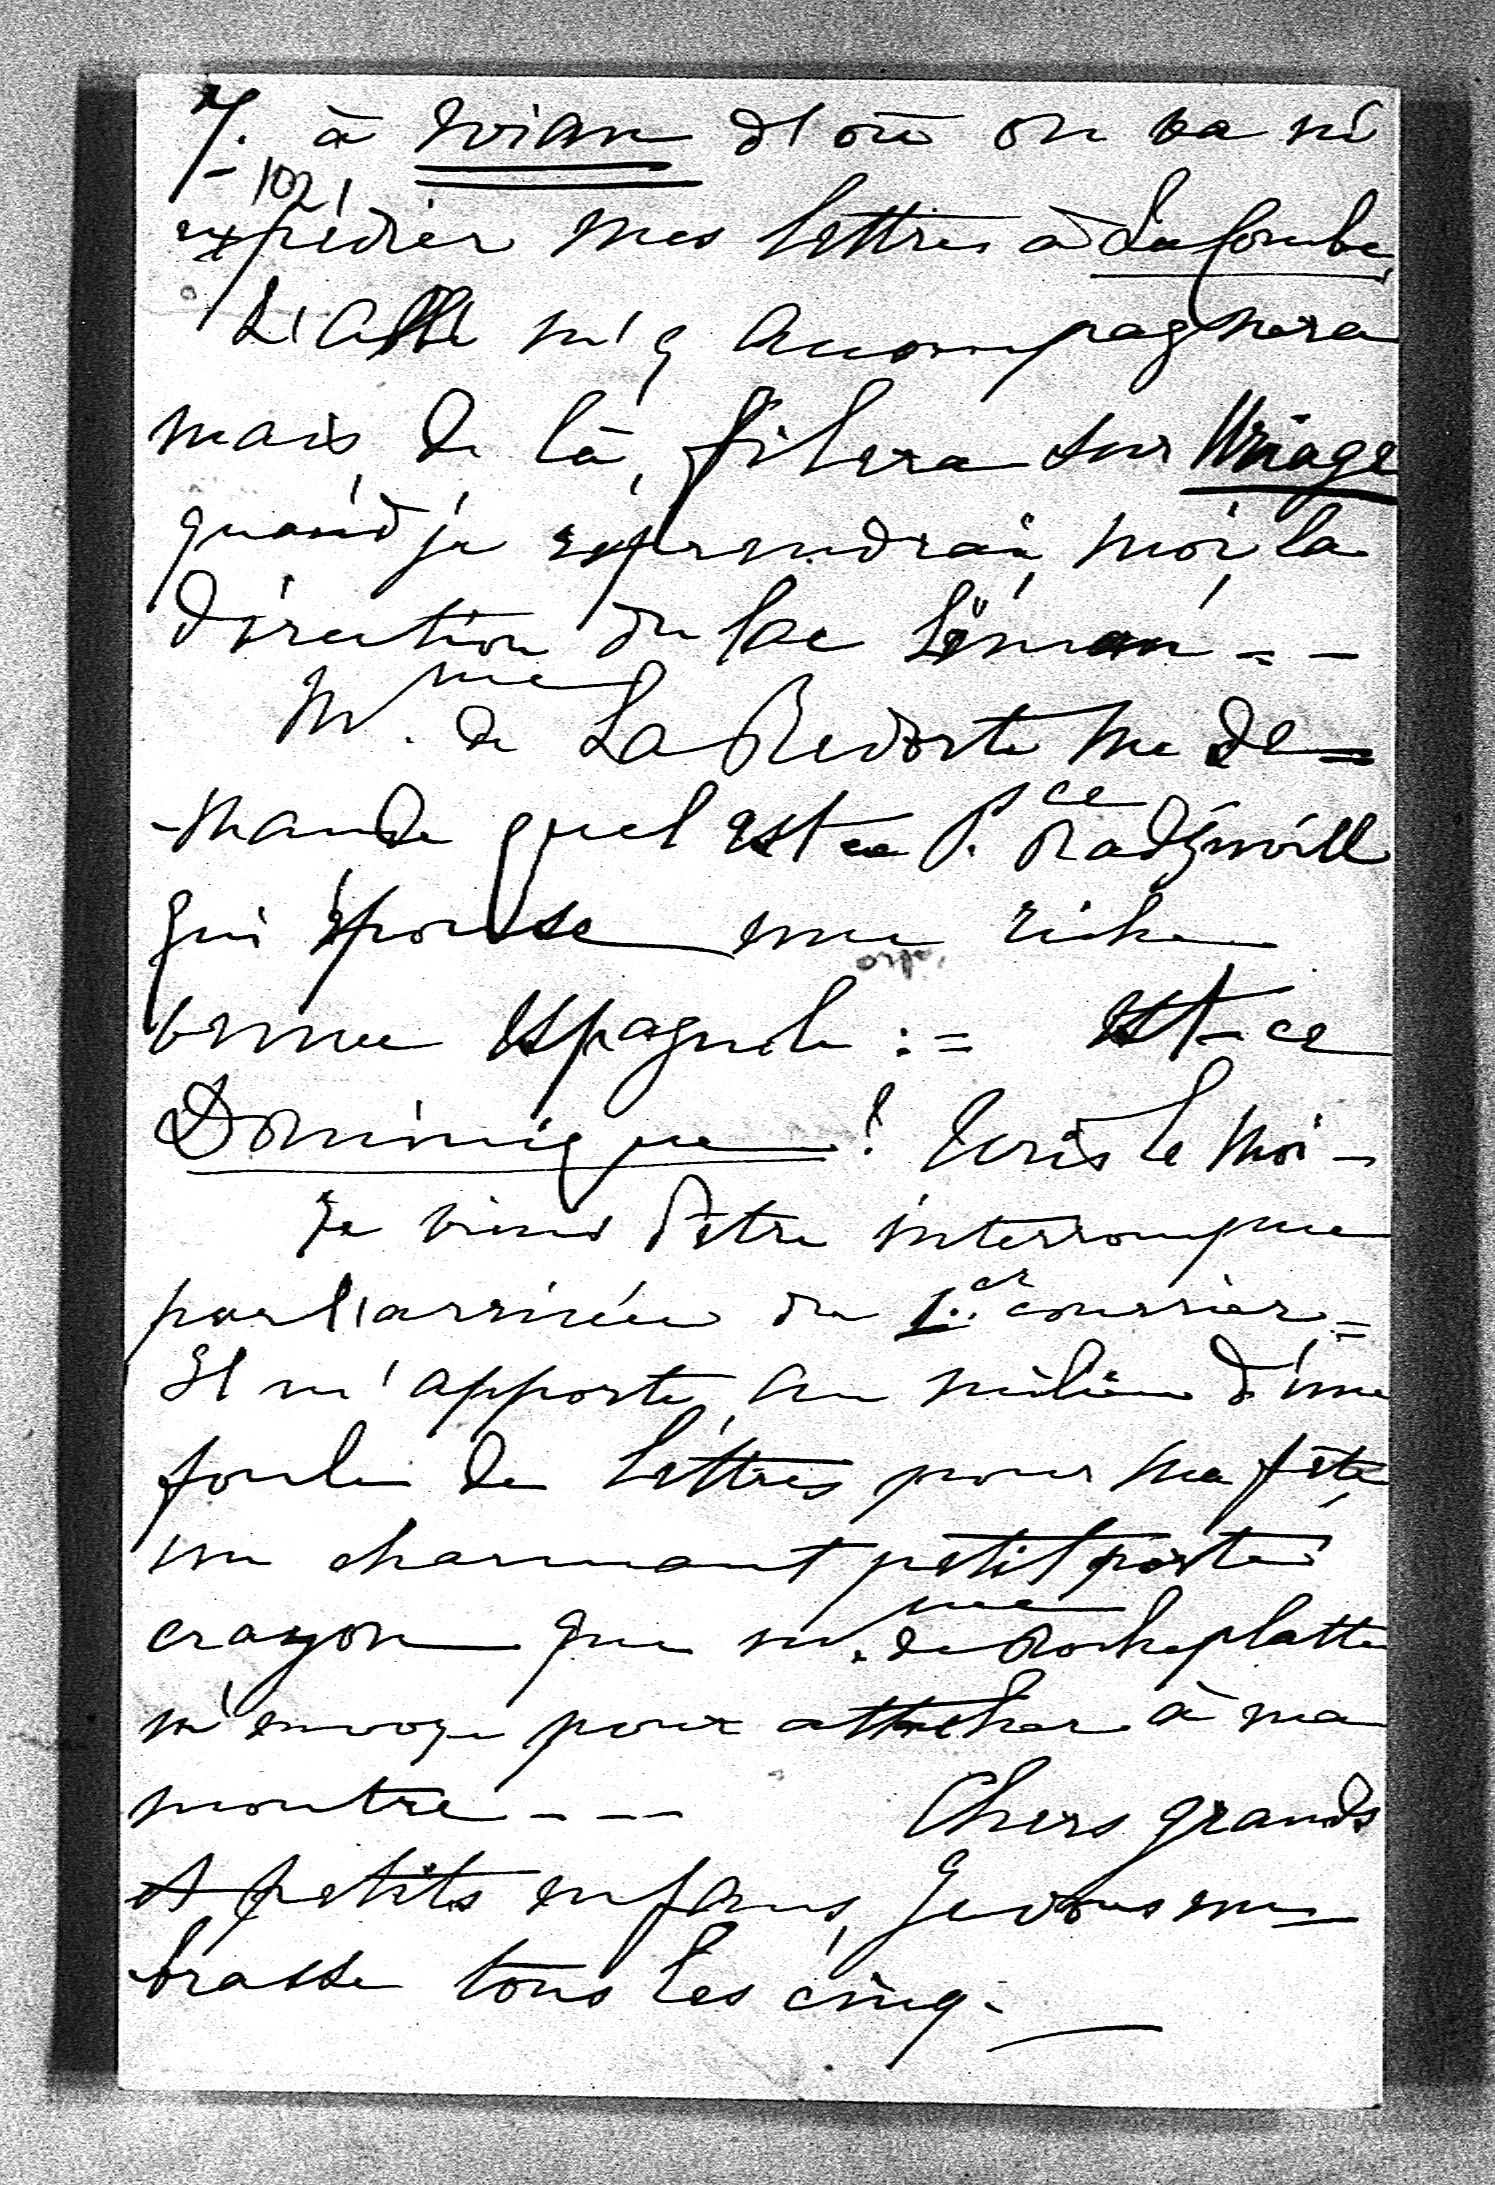 7. à Evian d'où on va m'
1021
expédier mes lettres à La Combe
L'abbé m'y accompagnera
mais, de là, filera sur Uriage
quand je reprendrai, moi, la
direction du lac Léman = -
Mme. de La Redorte me de=
-mande quel est ce Pce. Radziwill
qui épouse une riche
bonne Espagnole := Est-ce
Dominique? Ecris le moi -
Je viens d'être interrompue
par l'arrivée du 1er. courrier =
Il m'apporte, au milieu d'une
foule de lettres pour ma fête,
un charmant petit porte
crayon que Mme. de Rocheplatte
m'envoye pour attacher à ma
montre - - - Chers grands
et petits enfans, je vous em
brasse tous les cinq. —